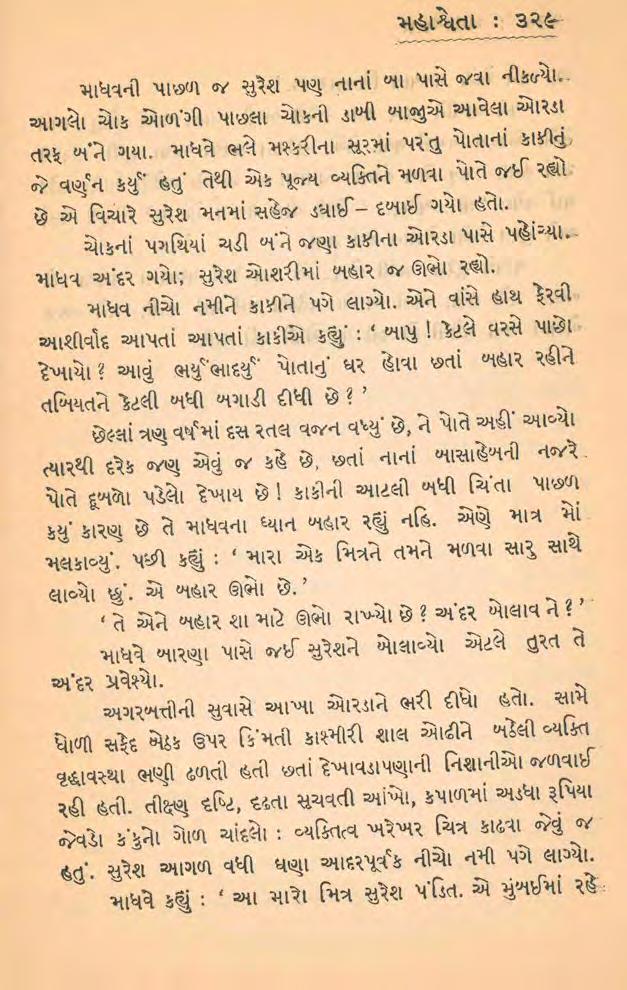 મહાશ્વેતા : ૩૨૯
માધવની પાછળ જ સુરેશ પણ નાનાં બા પાસે જવા નીકળ્યો.
આગલો ચોક ઓળંગી પાછલા ચોકની ડાબી બાજુએ આવેલા ઓરડા
તરફ બંને ગયા. માધવે ભલે મશ્કરીના સૂરમાં પરંતુ પોતાનાં કાકીનું
જે વર્ણન કર્યું હતું તેથી એક પૂજ્ય વ્યક્તિને મળવા પોતે જઈ રહ્યો
છે એ વિચારે સુરેશ મનમાં સહેજ ડઘાઈ – દબાઈ ગયો હતો.
ચોકનાં પગથિયાં ચડી બંને જણા કાકીના ઓરડા પાસે પહોંચ્યા.
માધવ અંદર ગયો; સુરેશ ઓશરીમાં બહાર જ ઊભો રહ્યો.
માધવ નીચો નમીને કાકીને પગે લાગ્યો. એને વાંસે હાથ ફેરવી
આશીર્વાદ આપતાં આપતાં કાકીએ કહ્યું : ‘ બાપુ ! કેટલે વરસે પાછો
દેખાયો ? આવું ભર્યુંભાદર્યું પોતાનું ઘર હોવા છતાં બહાર રહીને
તબિયતને કેટલી બધી બગાડી દીધી છે ? ’
છેલ્લાં ત્રણ વર્ષમાં દસ રતલ વજન વધ્યું છે, ને પોતે અહીં આવ્યો
ત્યારથી દરેક જણ એવું જ કહે છે, છતાં નાનાં બાસાહેબની નજરે
પોતે દૂબળો પડેલો દેખાય છે ! કાકીની આટલી બધી ચિંતા પાછળ
કયું કારણ છે તે માધવના ધ્યાન બહાર રહ્યું નહિ. એણે માત્ર મોં
મલકાવ્યું. પછી કહ્યું : ‘ મારા એક મિત્રને તમને મળવા સારુ સાથે
લાવ્યો છું. એ બહાર ઊભો છે.’
‘ તે એને બહાર શા માટે ઊભો રાખ્યો છે ? અંદર બોલાવ ને ? ’
માધવે બારણા પાસે જઈ સુરેશને બોલાવ્યો એટલે તુરત તે
અંદર પ્રવેશ્યો.
અગરબત્તીની સુવાસે આખા ઓરડાને ભરી દીધો હતો. સામે
ધોળી સફેદ બેઠક ઉપર કિંમતી કાશ્મીરી શાલ ઓઢીને બઠેલી વ્યક્તિ
વૃદ્ધાવસ્થા ભણી ઢળતી હતી છતાં દેખાવડાપણાની નિશાનીઓ જળવાઈ
રહી હતી. તીક્ષ્ણ દૃષ્ટિ, દૃઢતા સૂચવતી આંખો, કપાળમાં અડધા રૂપિયા
જેવડો કંકુનો ગોળ ચાંદલો : વ્યક્તિત્વ ખરેખર ચિત્ર કાઢવા જેવું જ
હતું. સુરેશ આગળ વધી ઘણા આદરપૂર્વક નીચો નમી પગે લાગ્યો.
માધવે કહ્યું : ‘ આ મારો મિત્ર સુરેશ પંડિત. એ મુંબઈમાં રહે